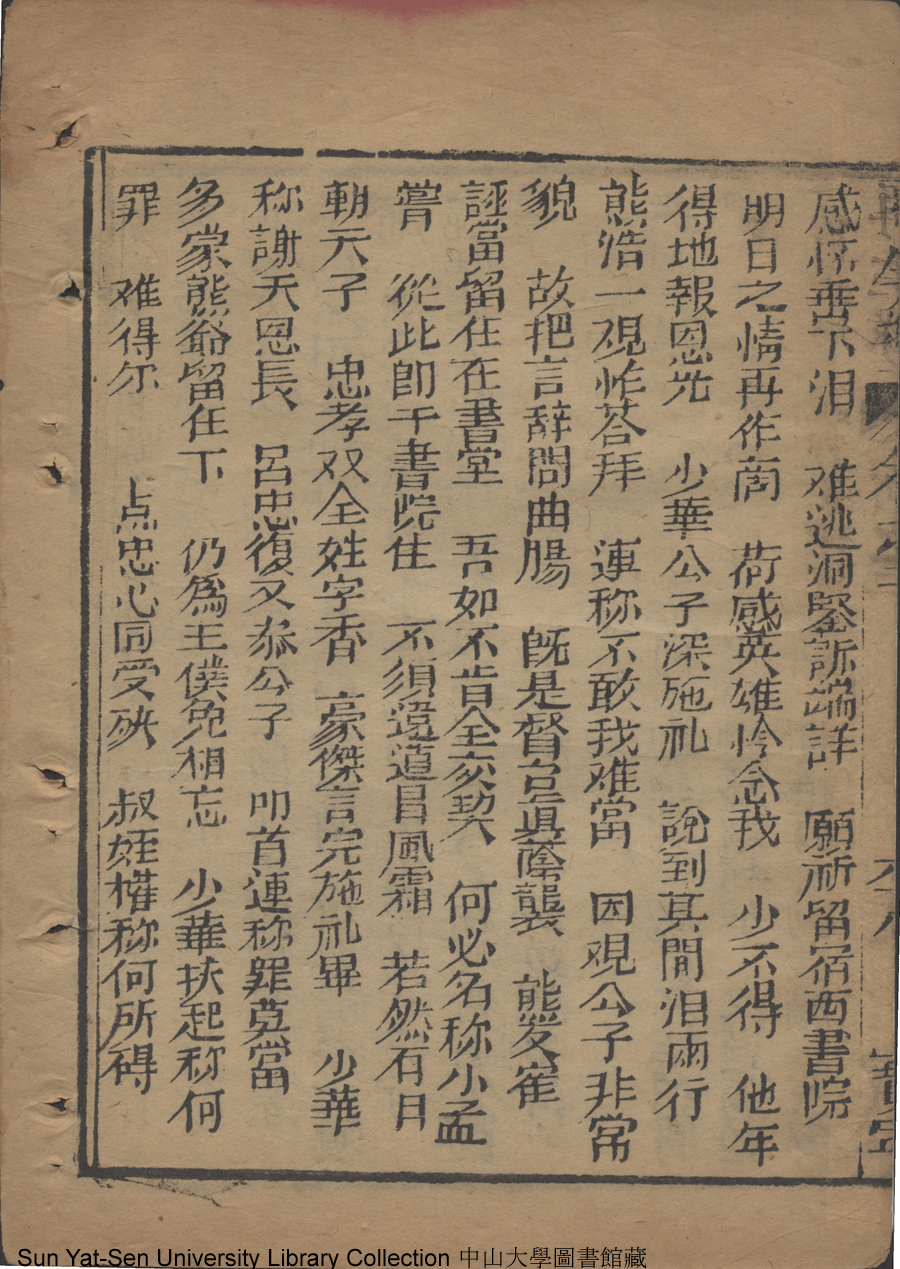 感怀垂下泪 难逃洞鑒訴端詳 願祈留宿西書院
明日之情再作商 荷感英雄怜念我 少不得 他年
得地報恩光 少華公子深施礼 說到其間泪兩行
熊浩一覌怍荅拜 連称不敢我难當 因覌公子非常
貌 故把言辞問曲腸 既是督台眞蔭襲 熊友崔
誣當留住在書堂 吾如不肯全亥契 何必名称小孟
甞 從此卽干書院住 不須遠道冒風霜 若然有日
朝天子 忠孝双全姓字香 豪傑言完施礼畢 少華
称謝天恩長 呂忠復又叅公子 叩首連称罪莫當
多蒙熊爺留住下 仍為主僕免相忘 少華扶起称何
罪 难得尔 点忠心同受殃 叔姪權称何所碍
Sun Yat-Sen University Library Collection 中山大學圖書館藏